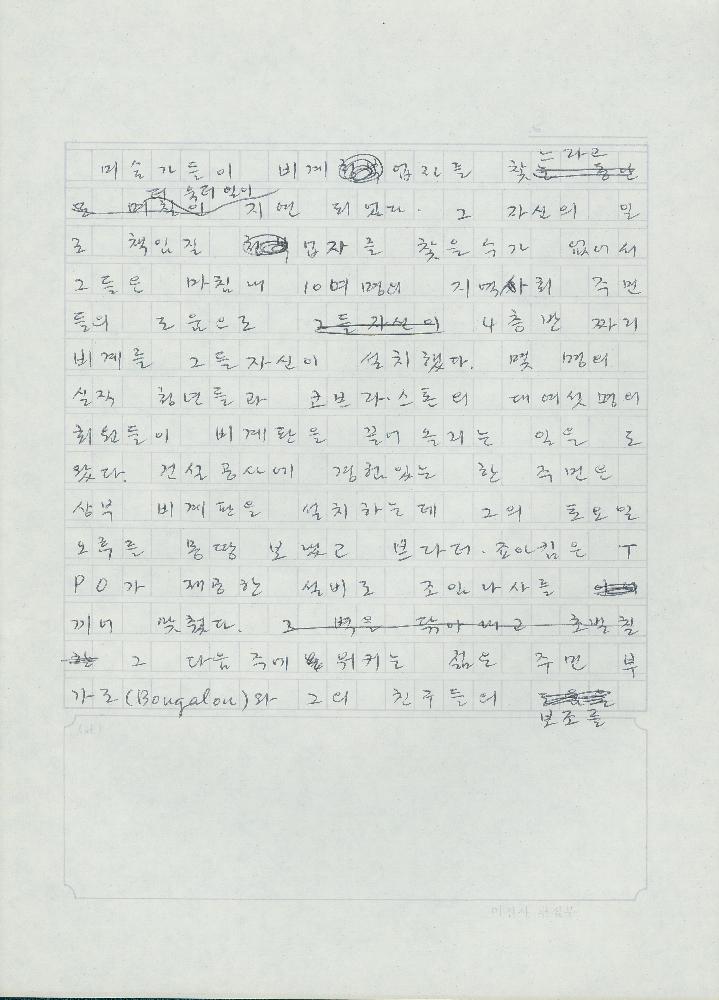 느라고
미술가들이 비계 업자를 찾
더 욱더 일이
지연 되었다. 그 자신의 일
로 책임질 업자를 찾을수가 없어서
그들은 마침내 10여 명의 지역사회 주민
들의 도움으로 그들 자신이 4층반 짜리
비계를 그들자신이 설치했다. 몇 명의
실직 청년들과 코브라·스톤의 대여섯명의
회원들이 비계판을 끌어 올리는 일을 도
왔다. 건설공사에 경험있는 한 주민은
상부 비계판을 설치하는데 그의 토요일
오후를 몽땅 보냈고 브라더·죠아킴은 T
PO가 제공한 설비로 조임나사를
끼너 맞췄다. 그 벽을 닦아내고 초벌칠
그 다음주에 워커는 젊은 주민 부
가루(Bougalou)와 그의 친구들의
보조를
미진사 편집부